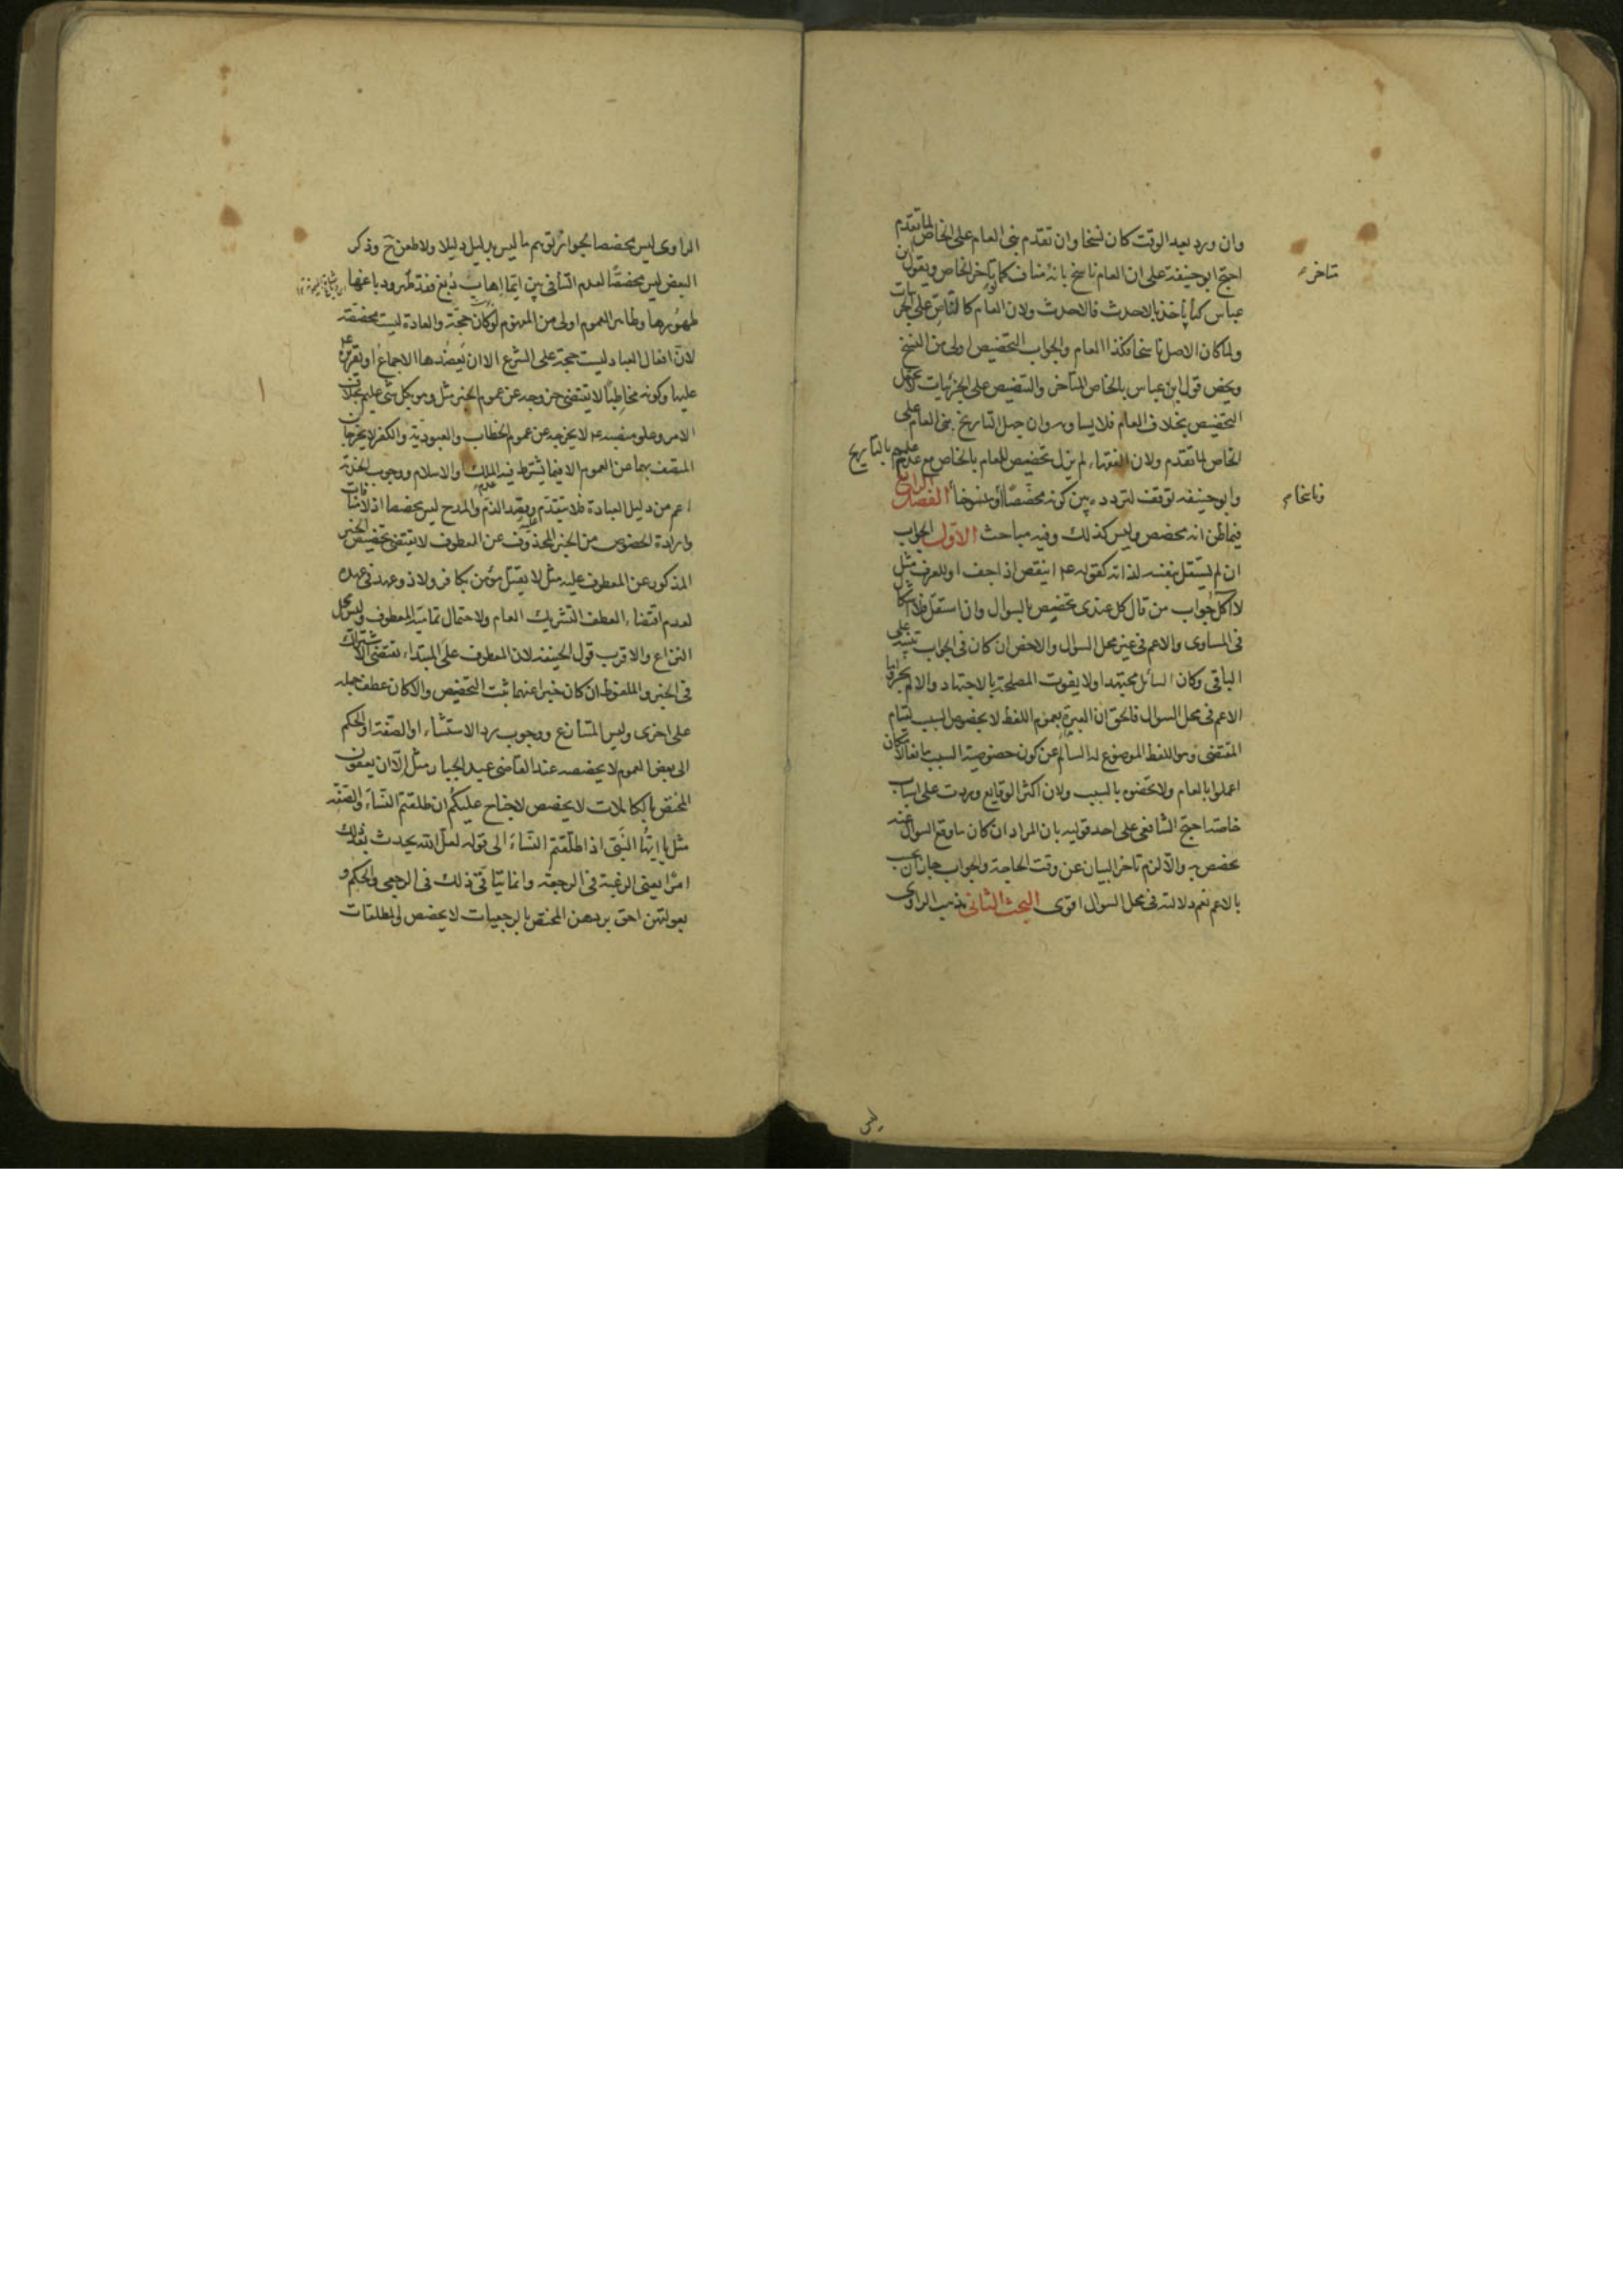 وان ورد بعد الوقت كان نسخا وان تقدم بنى العام على الخاص لما تقدم
احتج ابو حنيفة على ان العام ناسخ بانه مناف كما تاخر الخاص وبقول ابن
متاخر
عباس كنا ناخذ بالاحدث فالاحدث ولان العام كالنّاصّ على الجزئيات
ولما كان الاصل ناسخا فكذا العام والجواب التخصيص اولى من النسخ
ويخص قول ابن عباس بالخاص المتاخر والتنصيص على الجزئيات لا يحتمل
التخصيص بخلاف العام فلا يساويه وان جهل التاريخ بنى العام على
الخاص لما تقدم ولان الفقهاء لم يزل تخصيص العام بالخاص مع عدم علمهم بالتاريخ
وابو حنيفه توقف لتردده بين كونه مخصّصًا أو منسوخا الفصل الرابع
وناسخا
فيما ظن انه مخصص وليس كذلك وفيه مباحث الاوّل الجواب
ان لم يستقل بنفسه لذاته كقوله ع اينقص اذا جف او للعرف مثل
لا آكل جواب من قال كل عندى تخصيص بالسوال وان استقل فلا اشكال
فى المساوى والاعم فى غير محل السؤال والاخص ان كان فى الجواب تنبيه على
الباقى وكان السائل مجتهدا ولا يفوت المصلحة بالاجتهاد والا لم يجز واما
الاعم فى محل السوال فالحق ان العبرة بعموم اللفظ لا بخصوص السبب لقيام
المقتضى وهو اللفظ الموضوع له السالم عن كون خصوصية السبب مانعا لامكان
اعملوا بالعام ولا تخصوه بالسبب ولان اكثر الوقايع وردت على اسباب
خاصّة احتج الشافعى على احد قوليه بان المراد ان كان ما وقع السوال عنه
تخصص به والّا لزم تاخر البيان عن وقت الحاجة والجواب جاز ان يجب
بالاعم نعم دلالته فى محل السوال اقوى البحث الثانى مذهب الراوى
الراوى ليس بمخصص لجواز توهم ما ليس بدليل دليلا ولا طعن ح وذكر
البعض ليس مخصصًا لعدم التنافى بين ايّما إهاب دُبغ فقد طهر ودباغها
طهورها وظاهر العموم اولى من المفهوم لو كان حجّة والعادة ليست مخصصة
لانّ افعال العباد ليست حجة على الشرع الا ان يَعضُدها الاجماع او تقريره ع
عليها وكونه مخاطِبًا لا يقتضى خروجه عن عموم الخبر مثل وهو بكل شئ عليم بخلاف
الامر وعلو منصبه ع لا يخرجه عن عموم الخطاب والعبوديّة والكفر لا يخرجان
المتصف بهما عن العموم الا فيما يشترط فيه الملك او الاسلام ووجوب الخدمة
اعم من دليل العبادة فلا يتقدم عليه وقصد الذم والمدح ليس مخصصا اذ لا منافات
وارادة الخصوص من الخبر المحذوف عن المعطوف لا يقتضى تخصيص الخبر
المذكور عن المعطوف عليه مثل لا يقتل مؤمن بكافر ولا ذو عهد فى عهده
لعدم اقتضاء العطف التشريك العام ولاحتمال تمامية المعطوف وليس محل
النزاع والاقرب قول الحنيفه لان المعطوف على المبتداء يقتضى الاشتراك
فى الخبر والملفوظ ان كان خبرا عنهما ثبت التخصيص والا كان عطف جمله
على اخرى وليس المتنازع ووجوب رد الاستثناء او الصّفة او الحكم
الى بعض العموم لا يخصصه عند القاضى عبد الجبار مثل إلّا ان يعفون
المختص بالكاملات لا يخصص لا جناح عليكم ان طلّقتم النّساءَ والصّفة
مثل يا ايها النّبىّ اذا طلّقتم النساءَ الى قوله لعلّ اللّه يحدث بعد ذلك
امرًا يعنى الرغبة فى الرجعة وانما يتاتى ذلك فى الرجعى والحكم و
بعولتهن احق بردهن المختص بالرجعيات لا يخصص المطلقات